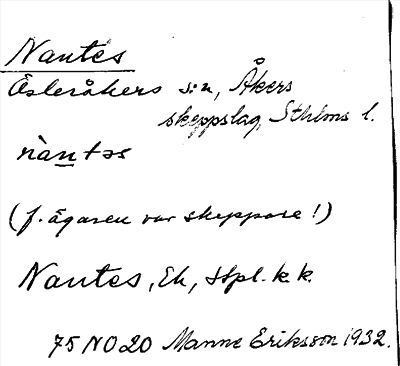 Nantes
Österåkers s:n, Åkers
skeppslag, Sthlms l.
nàntəs
(f. ägaren var skeppare!)
Nantes, Eh, Hpl. k. k.
75 NO 20 Manne Eriksson 1932.